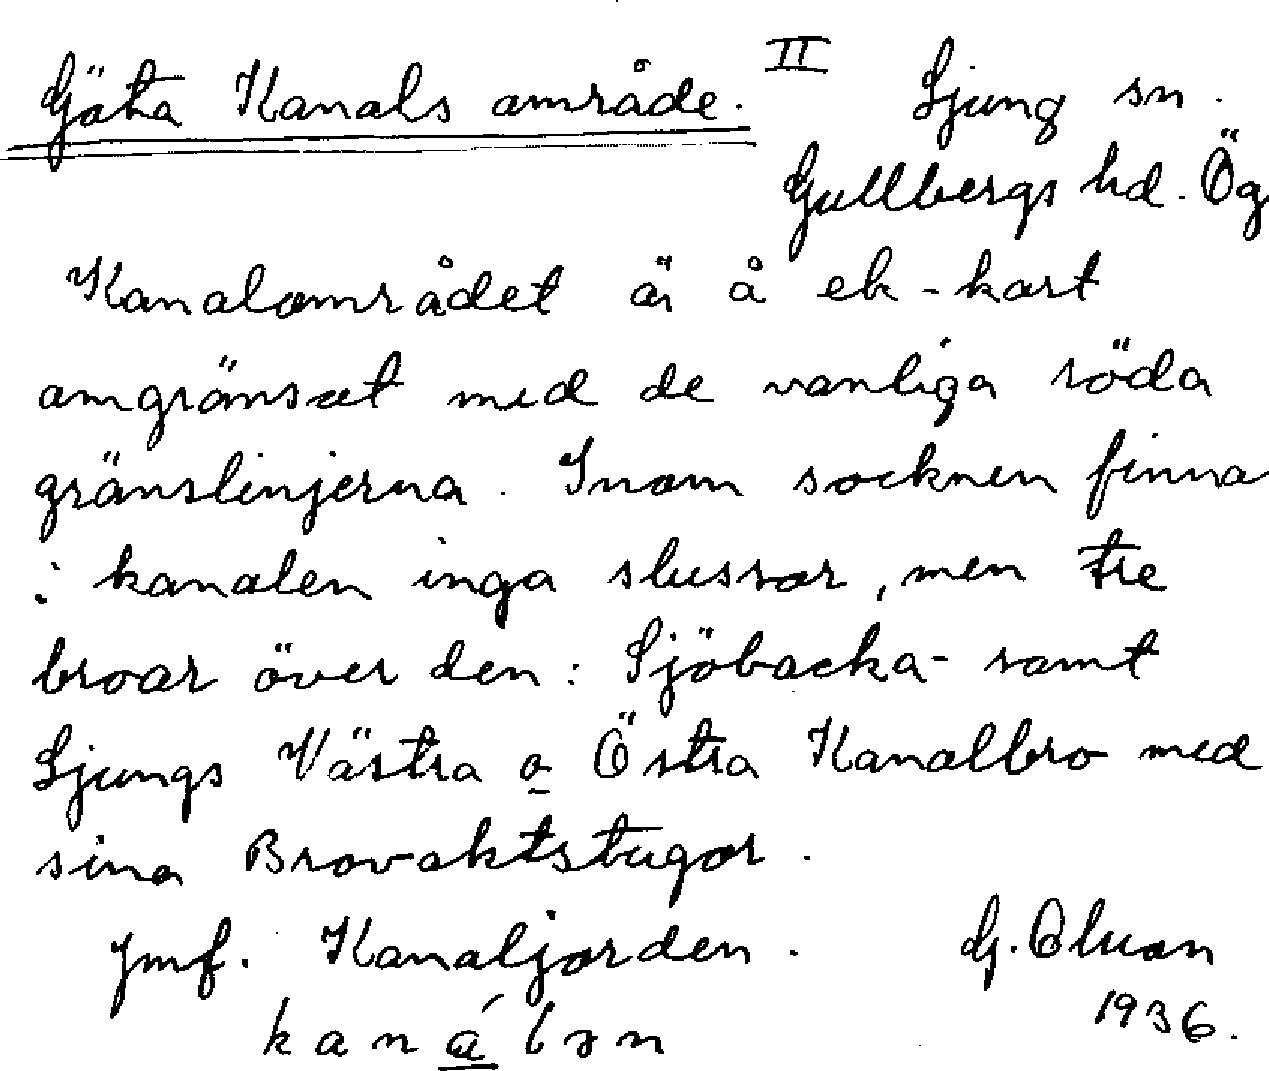 Göta Kanals område. II Ljung sn.
Gullbergs hd. Ög
Kanalområdet är å ek-kart
omgränsat med de vanliga röda
gränslinjerna. Inom socknen finna
i kanalen inga slussar, men tre
broar över den: Sjöbacka- samt
Ljungs Västra o Östra Kanalbro med
sina Brovaktstugor.
Jmf. Kanaljorden. G. Olson
1936.
kanálən